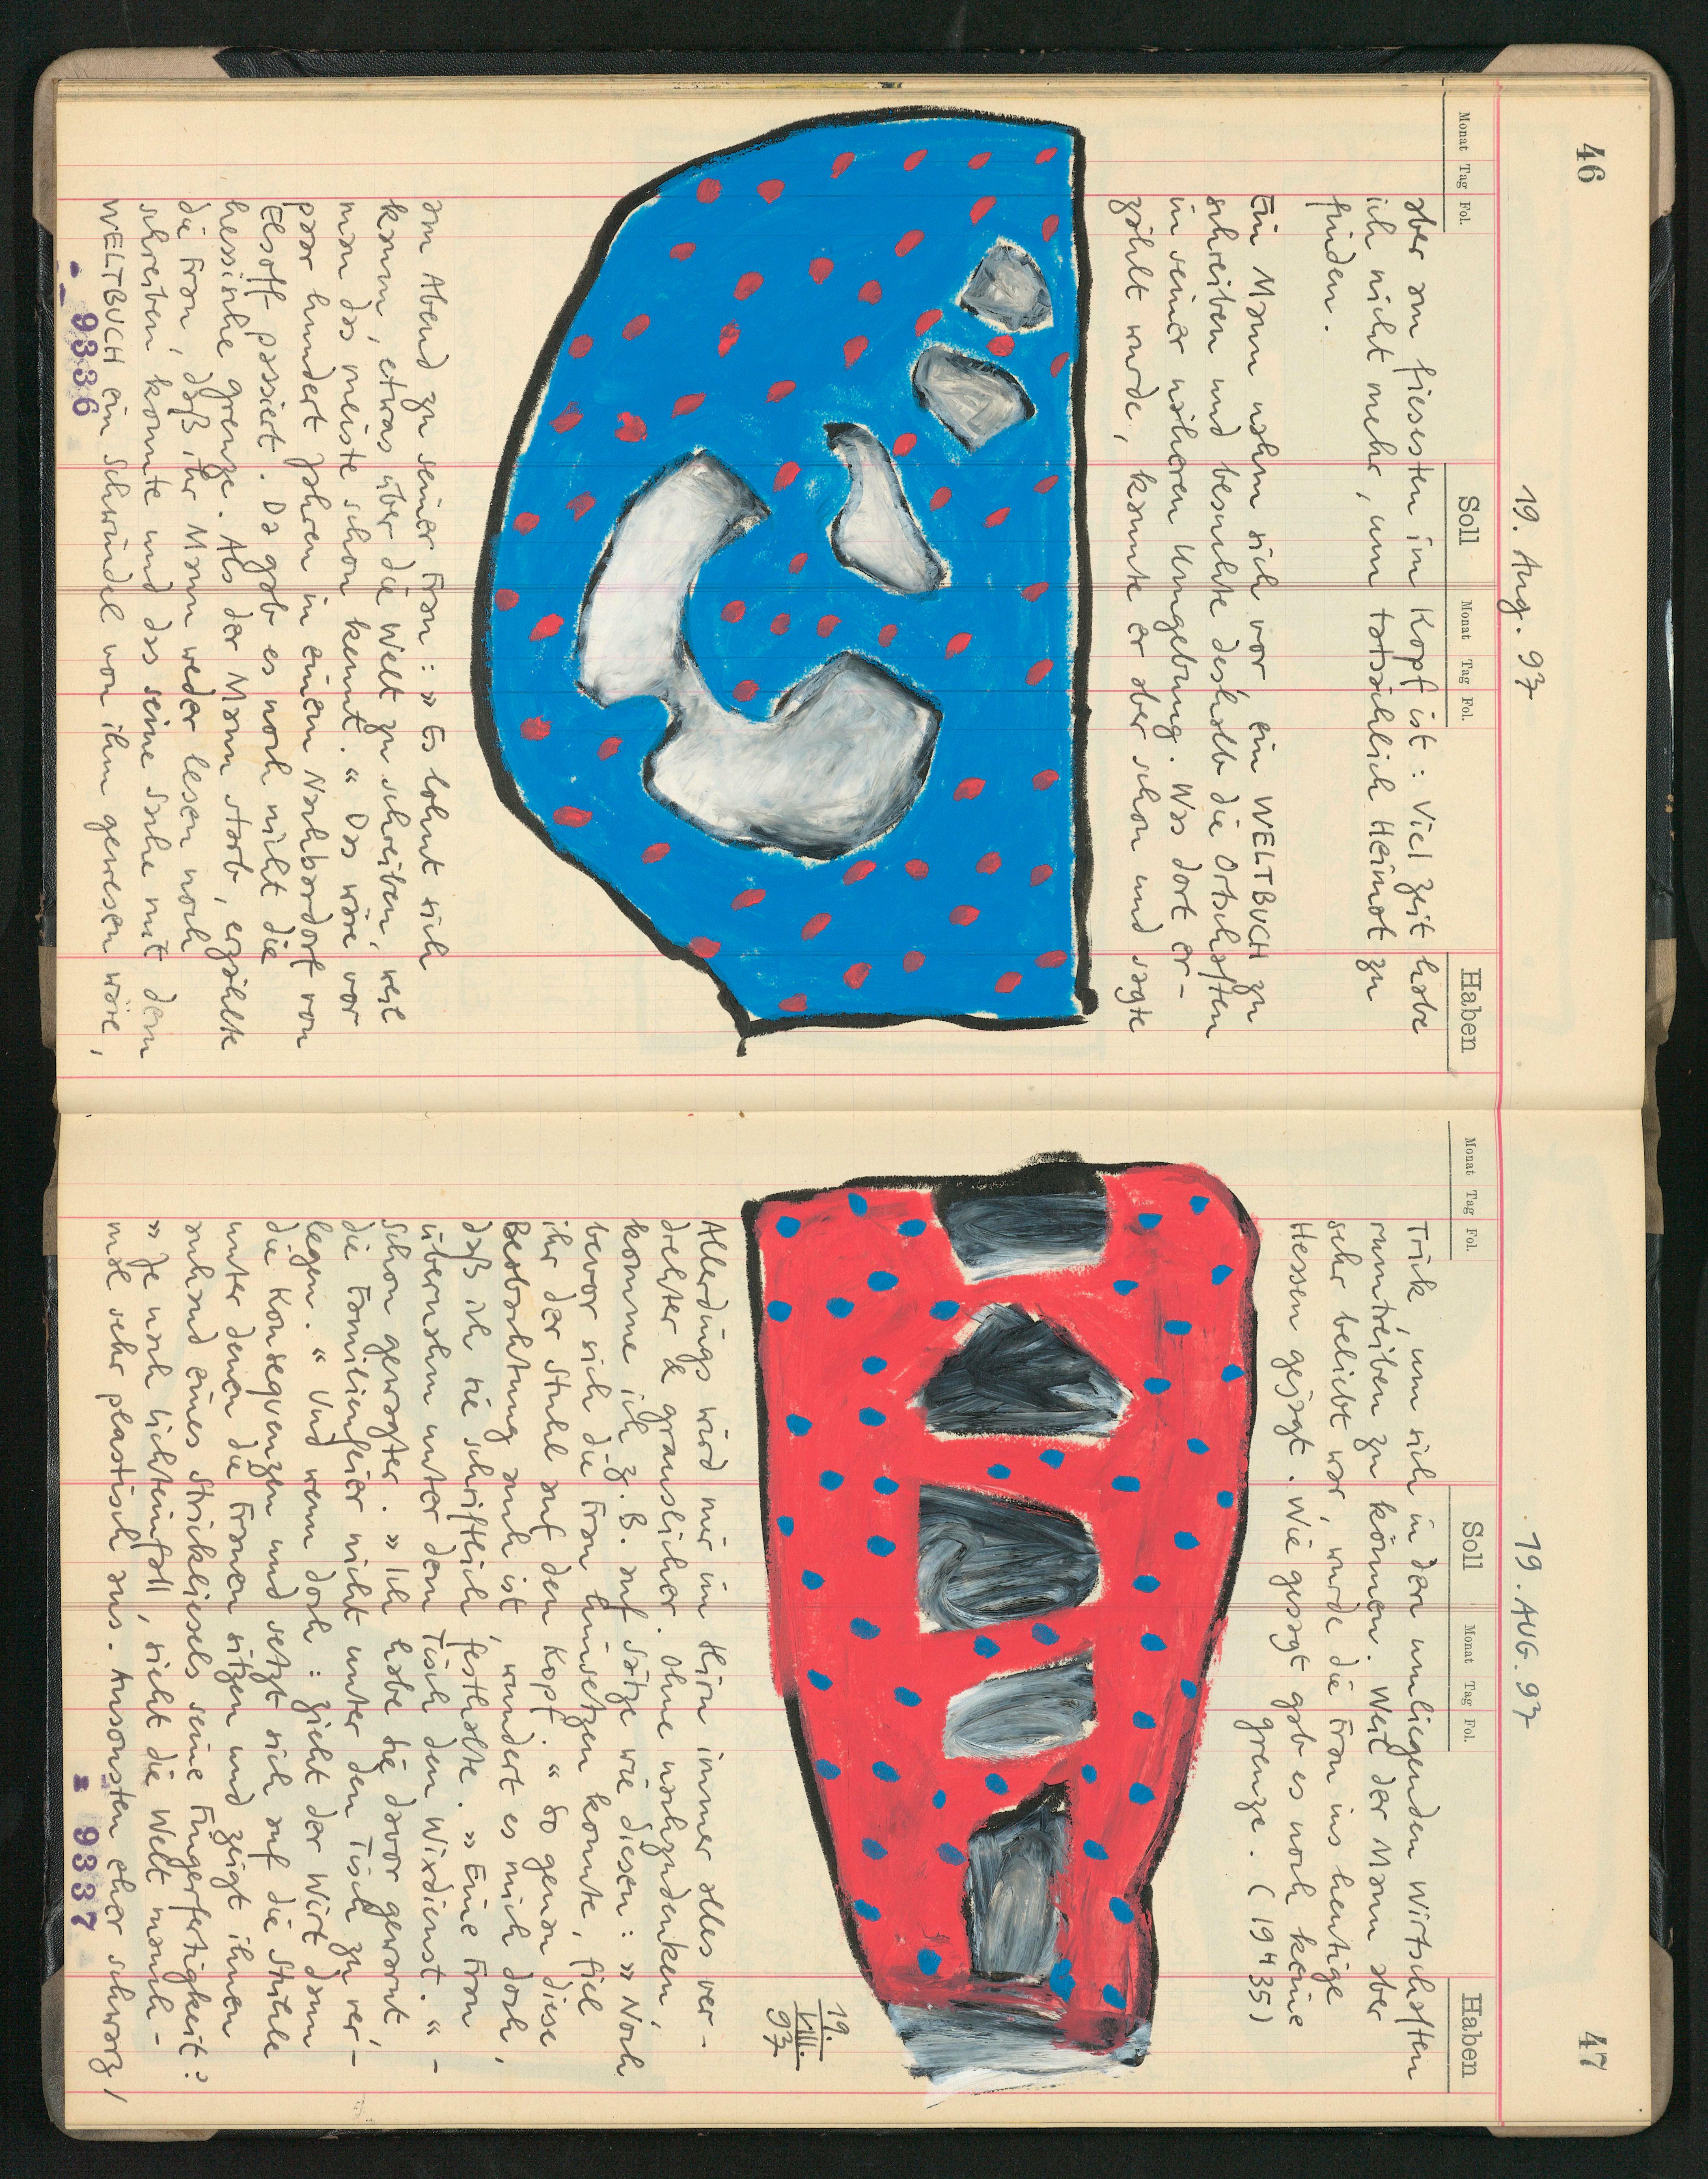 46
19. Aug. 97
Monat Tag Fol. Soll Monat Tag Fol. Haben
aber am fiesesten im Kopf ist: Viel Zeit habe
ich nicht mehr, um tatsächlich Heimat zu
finden.
Ein Mann nahm sich vor ein WELTBUCH zu
schreiben und besuchte deshalb die Ortschaften
in seiner näheren Umgebung. Was dort er-
zählt wurde, kannte er aber schon und sagte
am Abend zu seiner Frau: » Es lohnt sich
kaum, etwas über die Welt zu schreiben, weil
man das meiste schon kennt. « Das wäre vor
paar hundert Jahren in einem Nachbardorf von
Elsoff passiert. Da gab es noch nicht die
hessische Grenze. Als der Mann starb, erzählte
die Frau, daß ihr Mann weder lesen noch
schreiben konnte und das seine Sache mit dem
WELTBUCH ein Schwindel von ihm gewesen wäre,
- 9336
47
19. AUG. 97
Monat Tag Fol. Soll Monat Tag Fol. Haben
Trick, um sich in den umliegenden Wirtschaften
rumtreiben zu können. Weil der Mann aber
sehr beliebt war, wurde die Frau ins heutige
Hessen gejagt. Wie gesagt gab es noch keine
Grenze. (19435)
19.
VIII.
97
Allerdings wird mir im Hirn immer alles ver-
drehter & grauslicher. Ohne nachzudenken,
komme ich z.B. auf Sätze wie diesen: » Noch
bevor sich die Frau hinsetzen konnte, fiel
ihr der Stuhl auf den Kopf. « So genau diese
Beobachtung auch ist, wundert es mich doch,
daß ich sie schriftlich festhalte. » Eine Frau
übernahm unter dem Tisch den Wixdienst. « -
Schon gewagter. » Ich habe sie davor gewarnt,
die Familienfeier nicht unter den Tisch zu ver-
legen. « Und wenn doch: zieht der Wirt dann
die Konsequenzen und setzt sich auf die Stühle
unter denen die Frauen sitzen und zeigt ihnen
anhand eines Strickliesels seine Fingerfertigkeit?
» Je nach Lichteinfall, sieht die Welt manch-
mal sehr plastisch aus. Ansonsten eher schwarz /
- 9337